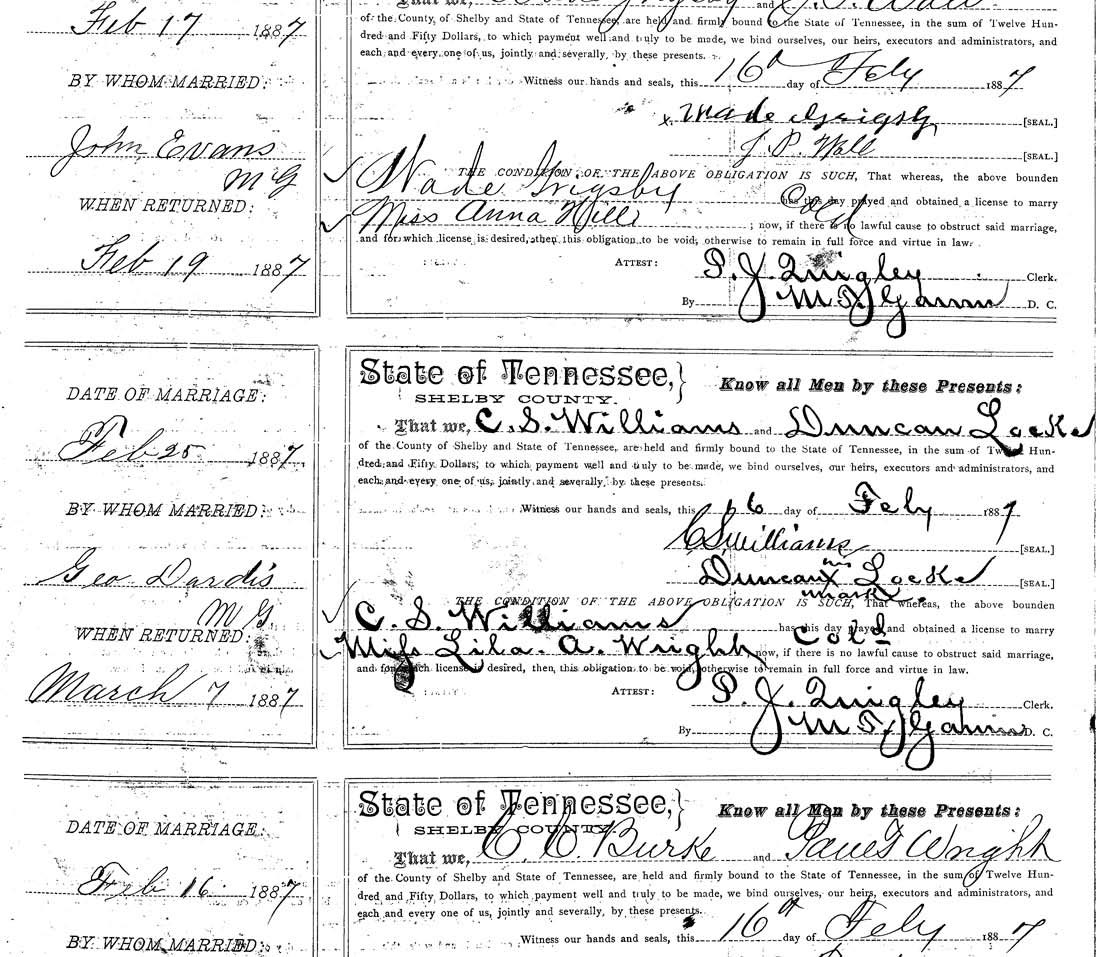 Feb 17 1887
BY WHOM MARRIED:
John Evans
M G
WHEN RETURNED:
Feb 19 1887
of the County of Shelby and State of Tennessee, are held and firmly bound to the State of Tennessee, in the sum of Twelve Hun-
dred and Fifty Dollars, to which payment well and truly to be made, we bind ourselves, our heirs, executors and administrators, and
each and every one of us, jointly and severally, by these presents.
Witness our hands and seals, this 16th day of Feby 1887
Wade Grigsby [SEAL.]
J. P. Will [SEAL.]
THE CONDITION OF THE ABOVE OBLIGATION IS SUCH, That whereas, the above bounden
Wade Grigsby has this day prayed and obtained a license to marry
Miss Anna Hill Cold ; now, if there is no lawful cause to obstruct said marriage,
and for which license is desired, then, this obligation to be void, otherwise to remain in full force and virtue in law.
ATTEST: P. J. Quigley Clerk.
By M. T. Garvin D. C.
DATE OF MARRIAGE:
Feb 25 1887
BY WHOM MARRIED:
Geo Dardis
M G.
WHEN RETURNED:
March 7 1887
State of Tennessee,} Know all Men by these Presents:
SHELBY COUNTY.
That we, C. S. Williams and Duncan Locke
of the County of Shelby and State of Tennessee, are held and firmly bound to the State of Tennessee, in the sum of Twelve Hun-
dred and Fifty Dollars, to which payment well and truly to be made, we bind ourselves, our heirs, executors and administrators, and
each and every one of us, jointly and severally, by these presents.
Witness our hands and seals, this 16 day of Feby 1887
C S Williams [SEAL.]
his
Duncan x Locke [SEAL.]
mark
THE CONDITION OF THE ABOVE OBLIGATION IS SUCH, That whereas, the above bounden
C. S. Williams has this day prayed and obtained a license to marry
Miss Lila. A. Wright Cold now, if there is no lawful cause to obstruct said marriage,
and for which license is desired, then, this obligation to be void, otherwise to remain in full force and virtue in law.
ATTEST: P. J. Quigley Clerk.
By M. T. Garvin D. C.
DATE OF MARRIAGE:
Feb 16 1887
BY WHOM MARRIED:
State of Tennessee,} Know all Men by these Presents:
SHELBY COUNTY.
That we, C. C. Burke and Wright
of the County of Shelby and State of Tennessee, are held and firmly bound to the State of Tennessee, in the sum of Twelve Hun-
dred and Fifty Dollars, to which payment well and truly to be made, we bind ourselves, our heirs, executors and administrators, and
each and every one of us, jointly and severally, by these presents.
Witness our hands and seals, this 16th day of Feby 1887